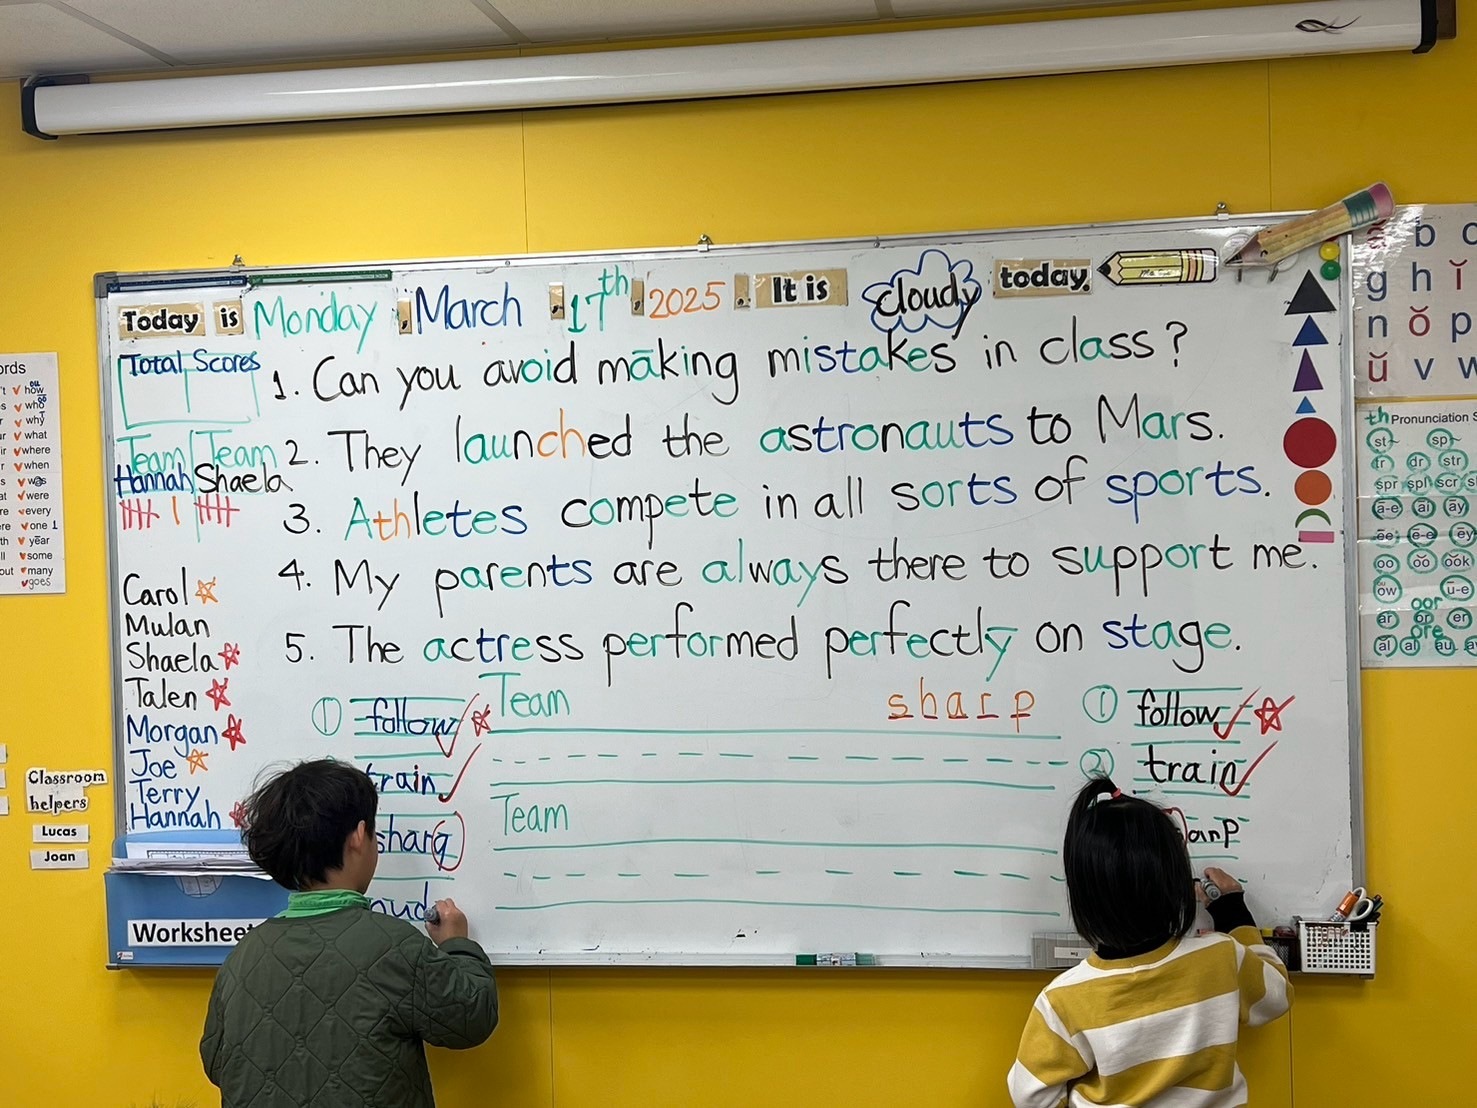 Today is Monday, March 17th, 2025. It is cloudy today.
Total Scores
Team Team
Hannah Shaela
1. Can you avoid māking mistakes in class?
2. They launched the astronauts to Mars.
3. Athletes compete in all sorts of sports.
4. My parents are always there to support me.
5. The actress performed perfectly on stage.
Carol
Mulan
Shaela
Talen
Morgan
Joe
Terry
Hannah
① follow
train
sharq
Team
sharp
Team
① follow
② train
arp
Worksheet
Classroom
helpers
Lucas
Joan
ords
how
who
why
what
where
when
was
were
every
one 1
yēar
some
many
goes
b c
g h ĭ
n ŏ p
ŭ v w
th Pronunciation S
st sp
tr dr str
spr spl scr
a-e ai ay
ee e-e ey
oo ŏŏ ook
ow u-e
oor
ar or er
ore
al all au